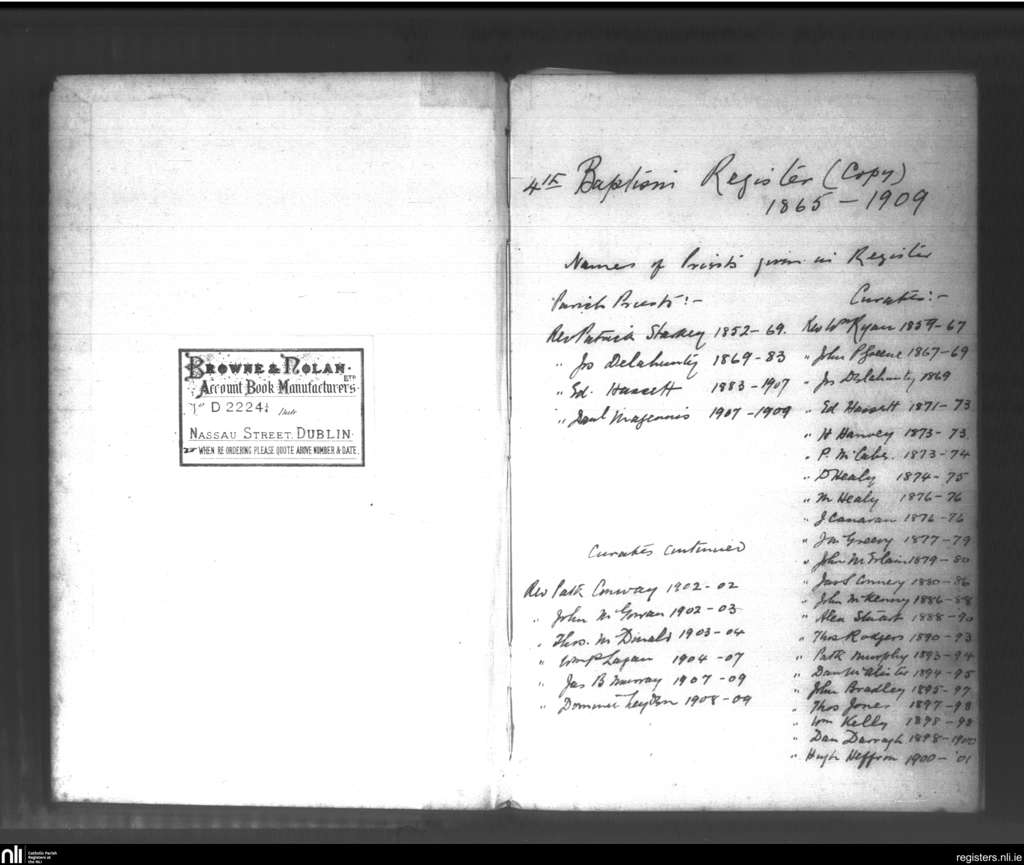 BROWNE & NOLAN LTD
Account Book Manufacturers
No D 2224 Date
NASSAU STREET. DUBLIN.
WHEN RE ORDERING PLEASE QUOTE ABOVE NUMBER & DATE.
4th Baptism Register (Copy)
1865 – 1909
Names of Priests given in Register
Parish Priests:–
Rev Patrick Starkey 1852–69.
" Jos Delahunty 1869–83
" Ed. Hassett 1883–1907
" Paul Magennis 1907–1909
Curates:–
Rev Wm Ryan 1859–67
" John P Greene 1867–69
" Jos Delahunty 1869
" Ed Hassett 1871–73
" H Harvey 1873–73
" P. McCabe. 1873–74
" D Healy 1874–75
" M Healy 1876–76
" J Canavan 1876–76
" Jas Greevy 1877–79
" John 1879–80
" Jas Convery 1880–86
" John McKenny 1886–88
" Alex Stuart 1888–90
" Thos Rodgers 1890–93
" Patk Murphy 1893–94
" Dan McAlister 1894–95
" John Bradley 1895–97
" Thos Jones 1897–98
" Wm Kelly 1898–98
" Dan Darragh 1898–1900
" Hugh Heffron 1900–'01
Curates continued
Rev Patk Conway 1902–02
" John McGowan 1902–03
" Thos. McDonald 1903–04
" Wm P Lagan 1904–07
" Jas B Murray 1907–09
" Dominic Leyden 1908–09
nli
Catholic Parish
Registers at
the NLI
registers.nli.ie